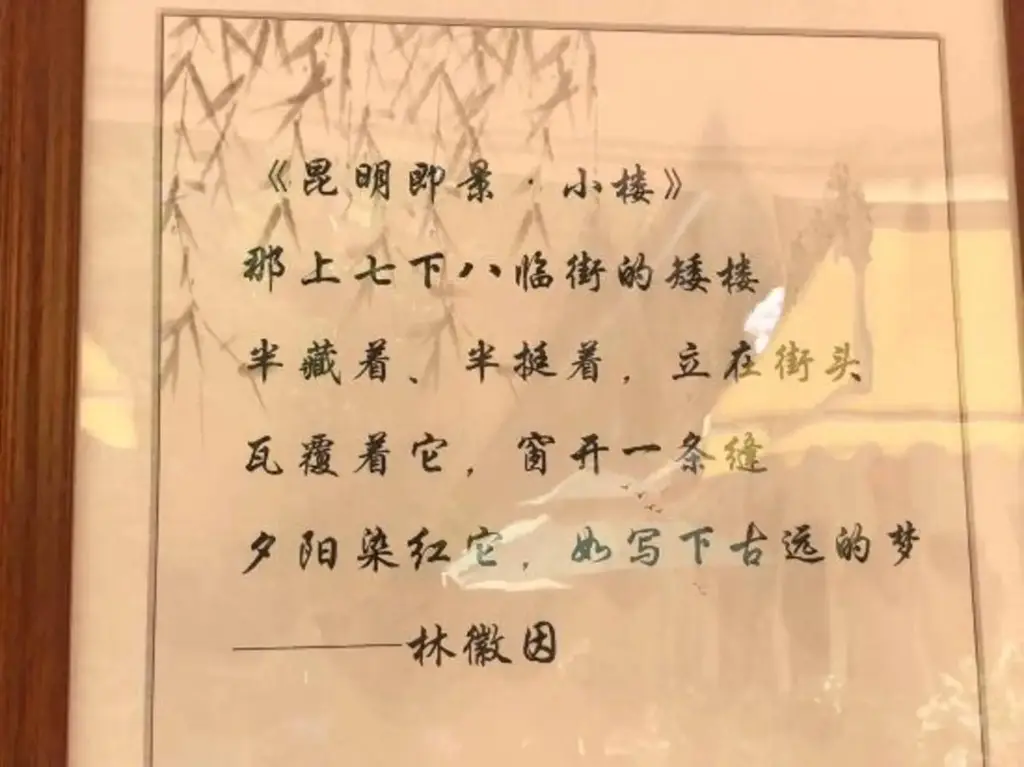 《昆明即景·小楼》
那上七下八临街的矮楼
半藏着、半挺着，立在街头
瓦覆着它，窗开一条缝
夕阳染红它，如写下古远的梦
———林徽因